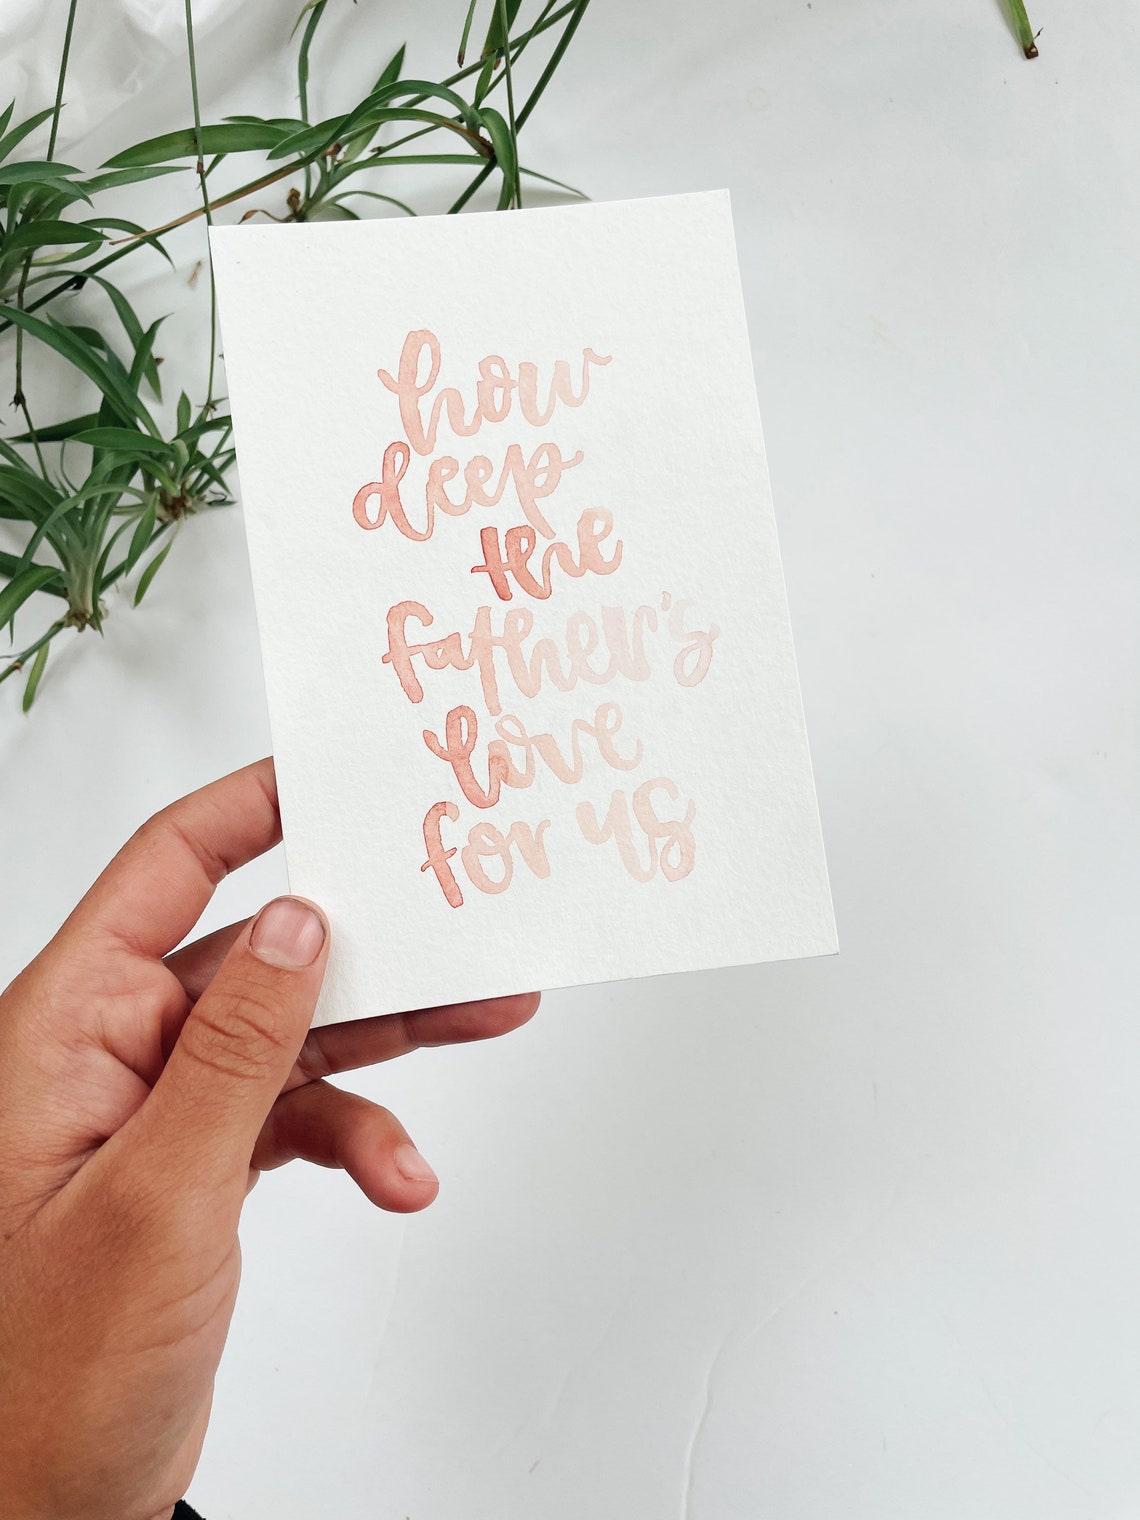 how
deep
the
father's
love
for us